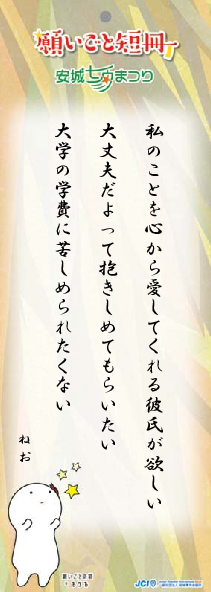 願いごと短冊
安城七夕まつり
私のことを心から愛してくれる彼氏が欲しい
大丈夫だよって抱きしめてもらいたい
大学の学費に苦しめられたくない
ねお
願いごと短冊
JCI